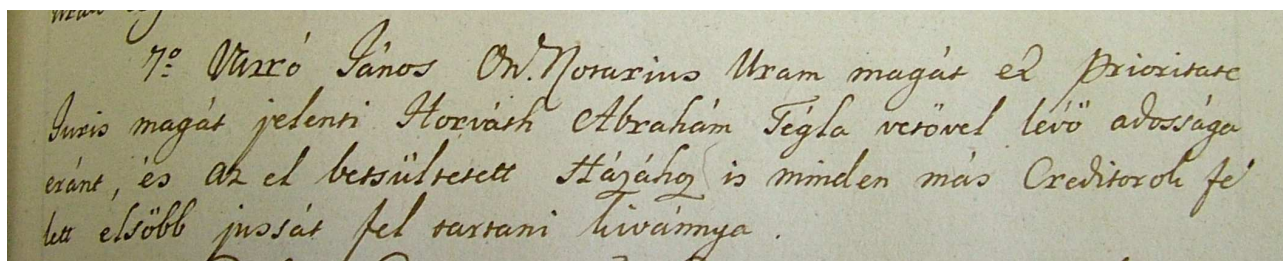 7º Varró János Ord. Notarius Uram magát ex Prioritate
Juris magát jelenti Horváth Abrahám Tégla vetövel lévö adossága
eránt, és az el betsültetett Házához is minden más Creditorok fe
lett elsöbb jussát fel tartani kivánnya.